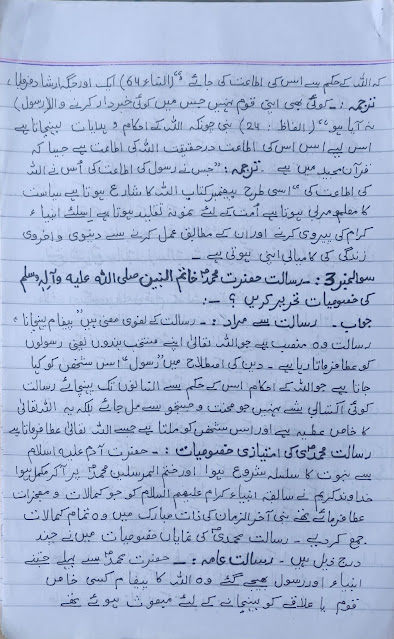 کہ اللہ کے حکم سے اس کی اطاعت کی جائے" (النساء 64) ایک اور جگہ ارشاد فرمایا،
ترجمہ :- "کوئی بھی ایسی قوم نہیں جس میں کوئی خبردار کرنے والا (رسول)
نہ آیا ہو" (الفاطر : 24) نبی چونکہ اللہ کے احکام و ہدایات پہنچاتا ہے
اس لیے اس کی اطاعت درحقیقت اللہ کی اطاعت ہے جیسا کہ
قرآن مجید میں ہے۔ ترجمہ: "جس نے رسول کی اطاعت کی اُس نے اللہ
کی اطاعت کی" اسی طرح پیغمبر کتاب اللہ کا شارع ہوتا ہے سیاست
کا معلم و مربی ہوتا ہے اُمت کے لئے نمونہ تقلید ہوتا ہے اسلئے انبیاء
کرام کی پیروی کرنے اور ان کے مطابق عمل کرنے سے دنیوی و اخروی
زندگی کی کامیابی اتنی ہوتی ہے۔
سوال نمبر 3 :- رسالت حضرت محمدؐ خاتم النبین صلی اللہ علیہ وآلہ وسلم
کی خصوصیات تحریر کریں ؟ :-
جواب۔ رسالت سے مراد :- رسالت کے لغوی معنی ہیں "پیغام پہنچانا"
رسالت وہ منصب ہے جو اللہ تعالیٰ اپنے منتخب بندوں یعنی رسولوں
کو عطا فرماتا رہا ہے۔ دین کی اصطلاح میں "رسول" اس شخص کو کہا
جاتا ہے جو اللہ کے احکام اس کے حکم سے انسانوں تک پہنچائے رسالت
کوئی اکتسابی شے نہیں جو محنت و جستجو سے مل جائے بلکہ یہ اللہ تعالیٰ
کا خاص عطیہ ہے اور اس شخص کو ملتا ہے جسے اللہ تعالیٰ عطا فرماتا ہے
رسالت محمدیؐ کی امتیازی خصوصیات :- حضرت آدم علیہ اسلام
سے نبوت کا سلسلہ شروع ہوا اور ختم المرسلین محمدؐ پر آ کر مکمل ہوا
خداوند کریم نے سابقہ انبیاء کرام علیھم السلام کو جو کمالات و معجزات
عطا فرمائے تھے نبی آخر الزمان کی ذات مبارک میں وہ تمام کمالات
جمع کر دیے۔ رسالت محمدیؐ کی نمایاں خصوصیات میں نے چند
درج ذیل ہیں۔ رسالت عامہ :- حضرت محمدؐ سے پہلے جتنے
انبیاء اور رسول بھیجے گئے وہ اللہ کا پیغام کسی خاص
قوم یا علاقے کو پہنچانے کے لئے مبعوث ہوئے تھے